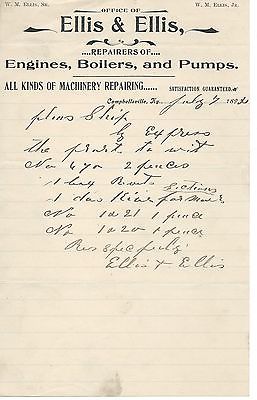 W. M. Ellis, Sr.
OFFICE OF
W. M. Ellis, Jr.
Ellis & Ellis,
REPAIRERS OF
Engines, Boilers, and Pumps.
ALL KINDS OF MACHINERY REPAIRING
SATISFACTION GUARANTEED
Campbellsville, Ky., July 7 189
Ship
By Express
the to wit
No 2 peaces
1 box Sections
1 dos
No 1021 1 peace
No 1020 1 peace
Respecfuly
Ellis & Ellis